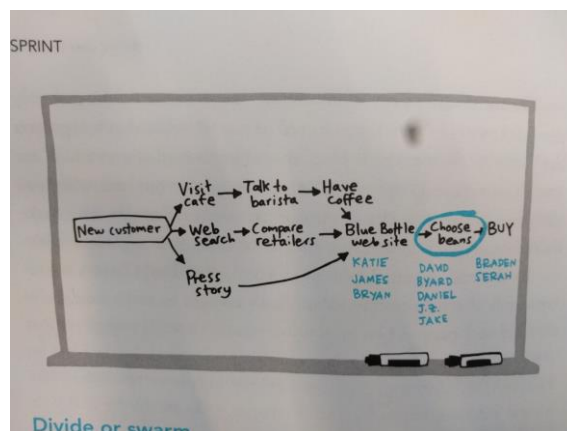 SPRINT
Visit cafe
Talk to barista
Have coffee
New customer
Web search
Compare retailers
Blue Bottle web site
Choose beans
BUY
Press story
KATIE
JAMES
BRYAN
DAVID
BYARD
DANIEL
J.Z.
JAKE
BRADEN
SERAH
Divide or swarm